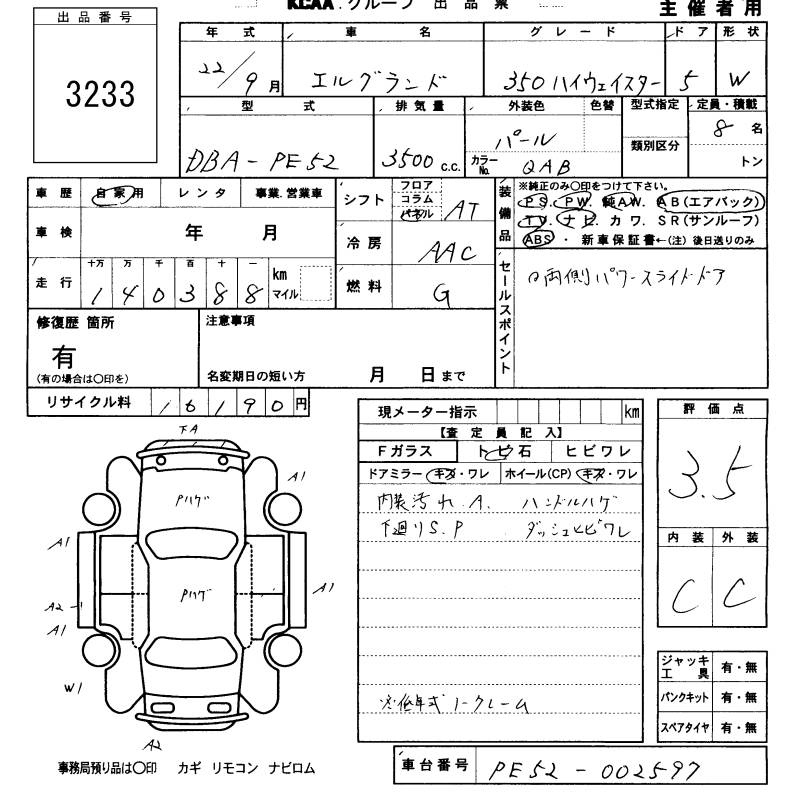 KCAA.グループ 出品票
主催者用
出品番号
3233
年式 車名 グレード ドア 形状
22/9月 エルグランド 350ハイウェイスター 5 W
型式 排気量 外装色 色替 型式指定 定員・積載
DBA-PE52 3500c.c. パール 類別区分 8名
カラーNo. QAB トン
車歴 自家用 レンタ 事業.営業車
車検 年 月
走行 十万 万 千 百 十 一
1 4 0 3 8 8 km マイル
シフト フロア コラム パネル AT
冷房 AAC
燃料 G
装備品 ※純正のみ〇印をつけて下さい。
PS. PW. 純AW. AB(エアバック)
TV. ナビ. カワ. SR(サンルーフ)
ABS ・ 新車保証書←(注) 後日送りのみ
セールスポイント
両側パワースライドドア
修復歴 箇所
有
(有の場合は〇印を)
注意事項
名変期日の短い方 月 日まで
リサイクル料 16190円
現メーター指示 km
【査定員記入】
Fガラス トビ石 ヒビワレ
ドアミラー キズ・ワレ ホイール(CP) キズ・ワレ
内装汚れ A. ハンドルハゲ
下廻りS.P ダッシュヒビワレ
※低年式ノークレーム
評価点
3.5
内装 外装
C C
ジャッキ工具 有・無
パンクキット 有・無
スペアタイヤ 有・無
下A
A1
Pハゲ
A1
A2
Pハゲ
A1
A1
W1
A2
事務局預り品は〇印 カギ リモコン ナビロム
車台番号 PE52-002597